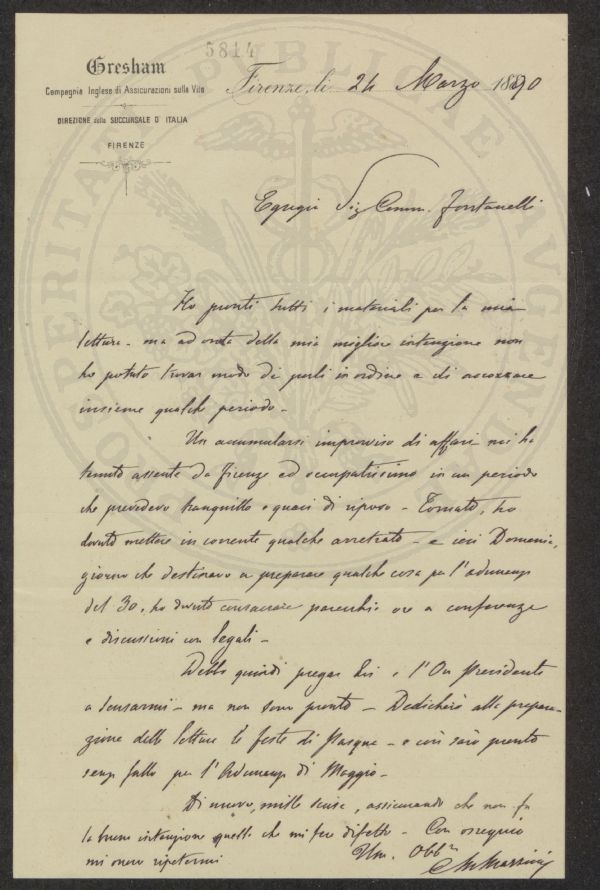 5814
Gresham
Compagnia Inglese di Assicurazioni sulla Vita
DIREZIONE della SUCCURSALE D'ITALIA
FIRENZE
Firenze, li 24 Marzo 1890
Egregio Sig Comm. Fontanelli
Ho pronti tutti i materiali per la mia
lettura - ma ad onta della mia migliore intenzione non
ho potuto trovar modo di porli in ordine e di accozzare
insieme qualche periodo -
Un accumularsi improvviso di affari mi ha
tenuto assente da Firenze ed occupatissimo in un periodo
che prevedevo tranquillo e quasi di riposo - Tornato, ho
dovuto mettere in corrente qualche arretrato - e ieri Domenica,
giorno che destinavo a preparare qualche cosa per l'adunanza
del 30, ho dovuto consacrare parecchie ore a conferenze
e discussioni con legali -
Debbo quindi pregar Lei e l'On Presidente
a scusarmi - ma non sono pronto - Dedicherò alla prepara-
zione delle letture le feste di Pasqua - e così sarò pronto
senza fallo per l'Adunanza di Maggio -
Di nuovo, mille scuse, assicurando che non fu
la buona intenzione quella che mi fece difetto - Con ossequio
mi onoro ripetermi
Um. Obbmo
PROSPERITATI PUBLICAE AUGENDAE